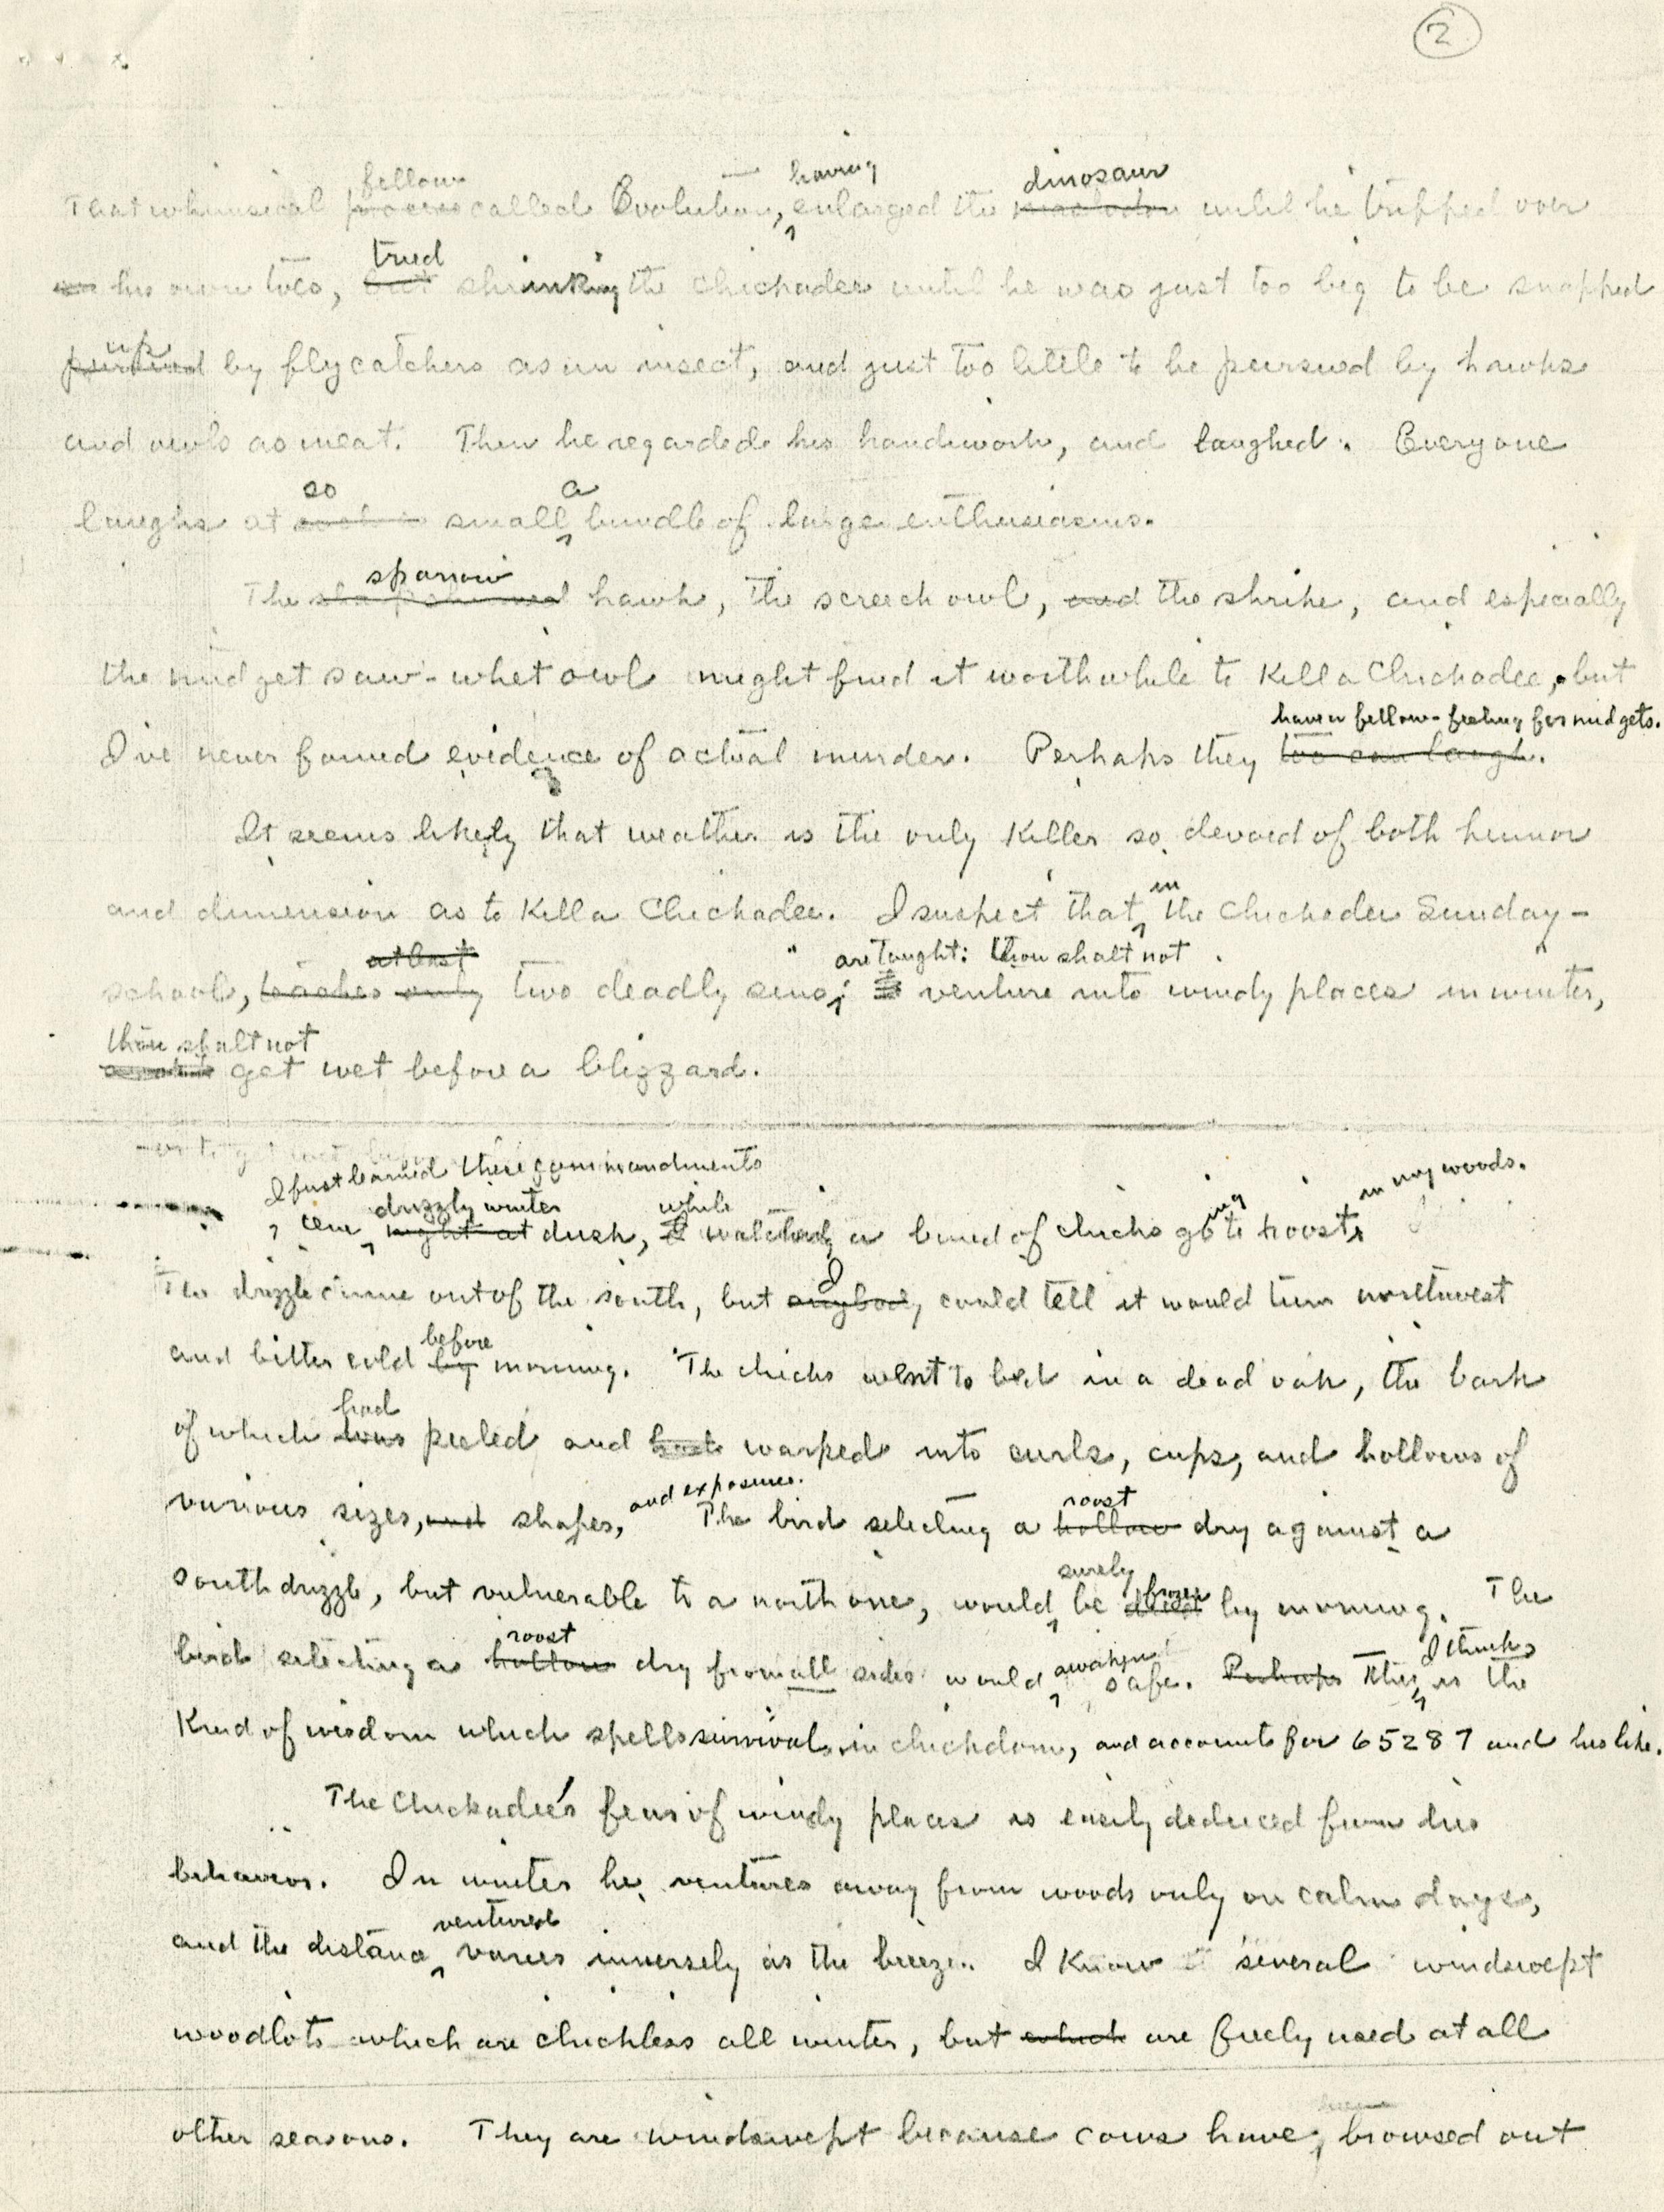 2
fellow having dinosaur
That whimsical process called Evolution, enlarged the mastodon until he tripped over
tried
on his own toes, but shrinking the chickadee until he was just too big to be snapped
up
pursued by flycatchers as an insect, and just too little to be pursued by hawks
and owls as meat. Then he regarded his handiwork, and laughed. Everyone
so a
laughs at such a small bundle of large enthusiasms.
sparrow
The sharpshinned hawk, the screech owl, and the shrike, and especially
the midget saw-whet owl might find it worthwhile to kill a Chickadee, but
have a fellow-feeling for midgets.
I've never found evidence of actual murder. Perhaps they too can laugh.
It seems likely that weather is the only killer so devoid of both humor
in
and dimension as to kill a Chickadee. I suspect that the Chickadee Sunday-
at least are taught: thou shalt not
school, teaches only two deadly sins; venture into windy places in winter,
thou shalt not
get wet before a blizzard.
or to get wet
I first learned these commandments in my woods.
drizzly winter while ing
one night at dusk, I watching a band of chicks go to roost
I
The drizzle came out of the south, but anybody could tell it would turn northwest
before
and bitter cold by morning. The chicks went to bed in a dead oak, the bark
had
of which was peeled and had warped into curls, cups, and hollows of
and exposures. roost
various sizes, and shapes, The bird selecting a hollow dry against a
surely frozen
south drizzle, but vulnerable to a north one, would be by morning. The
roost awaken I think
bird selecting a hollow dry from all sides would safe. Perhaps This is the
kind of wisdom which spells survival in chickdom, and accounts for 65287 and his like.
The Chickadee's fear of windy places is easily deduced from his
behavior. In winter he ventures away from woods only on calm days,
ventured
and the distance varies inversely as the breeze. I know several windswept
woodlots which are chickless all winter, but which are freely used at all
other seasons. They are windswept because cows have browsed out